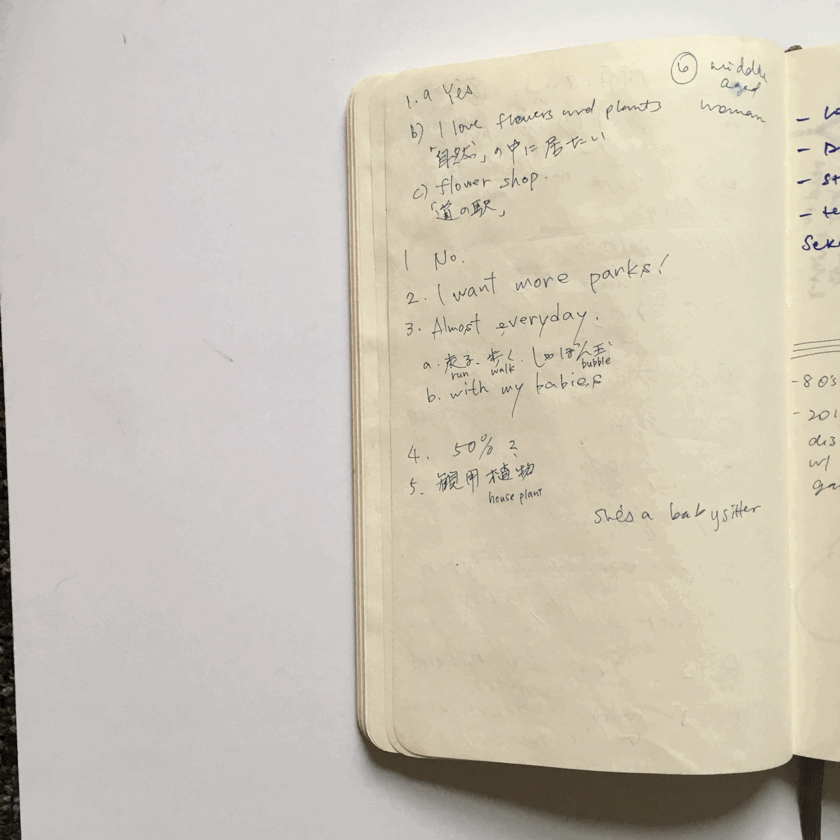 ⑥ middle
aged
woman
1. a Yes
b) I love flowers and plants
「自然」の中に居たい
c) flower shop.
「道の駅」
1 No.
2. I want more parks!
3. Almost everyday.
a. 走る、歩く、しゃぼん玉
run walk bubble
b. with my babies
4. 50% ?
5. 観用植物
house plant
she's a babysitter
- 80's
- 201
w/